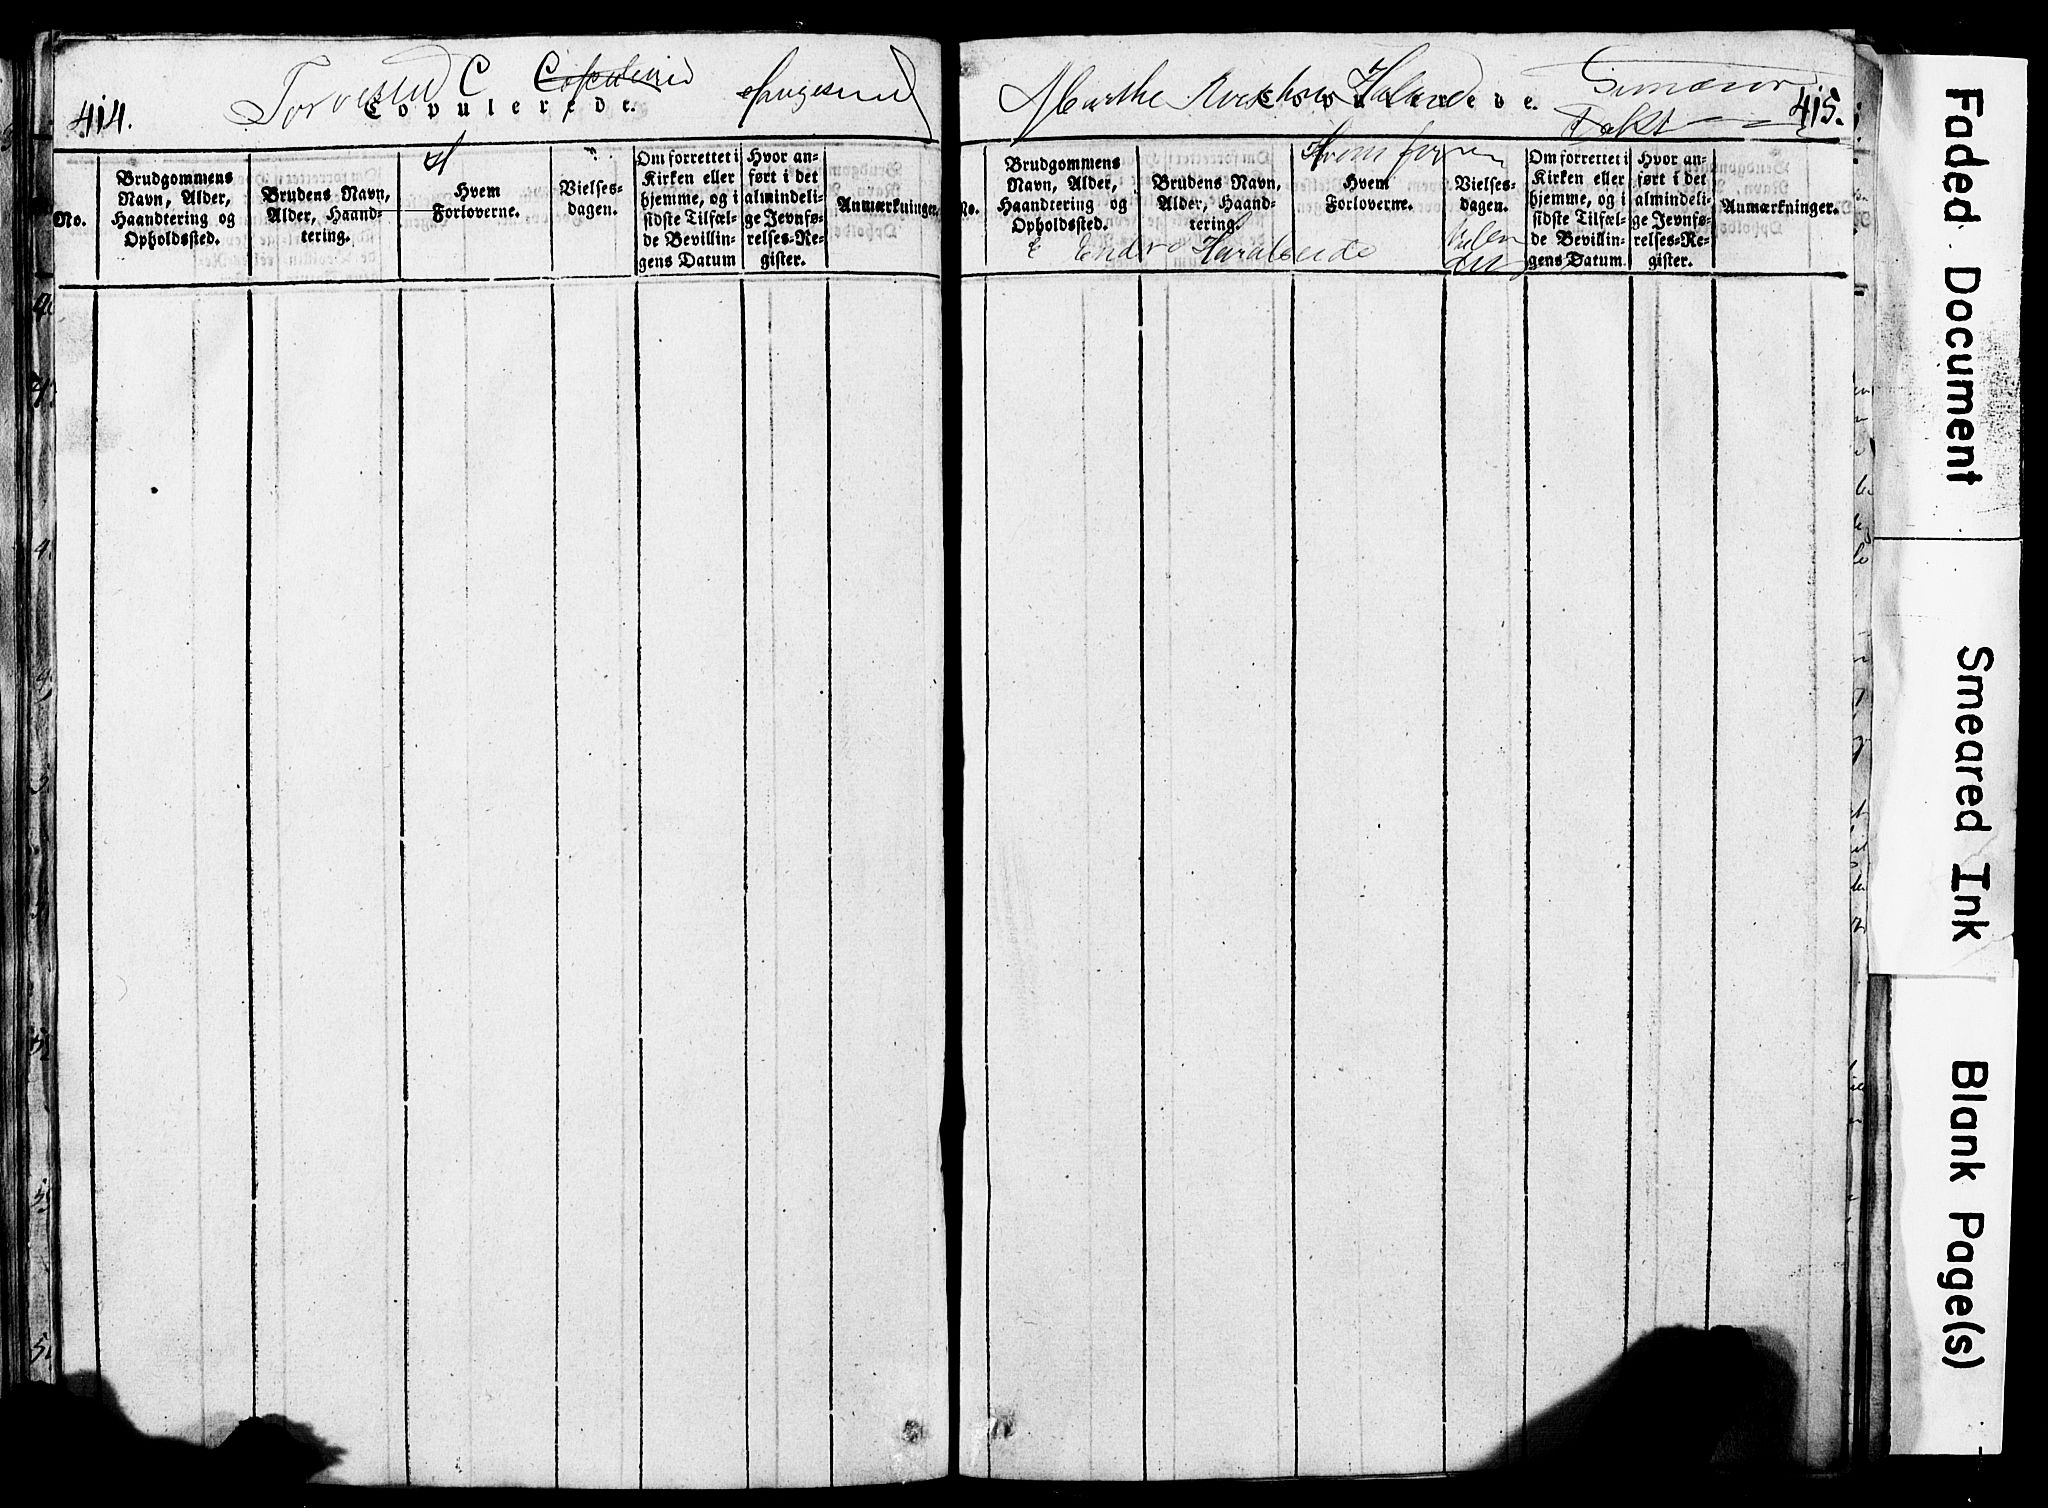 Torvestad C Copulerede
414.
Copulerede.
No.
Brudgommens
Navn, Alder,
Haandtering og
Opholdssted.
Brudens Navn,
Alder, Haand-
tering.
Hvem
Forloverne.
Vielses-
dagen.
Om forrettet i
Kirken eller
hjemme, og i
sidste Tilfæl-
de Bevillin-
gens Datum
Hvor an-
ført i det
almindeli-
ge Jevnfø-
relses-Re-
gister.
Anmærkninger.
Marthe
Copulerede.
415.
No.
Brudgommens
Navn, Alder,
Haandtering og
Opholdssted.
Brudens Navn,
Alder, Haand-
tering.
Hvem
Forloverne.
Vielses-
dagen.
Om forrettet i
Kirken eller
hjemme, og i
sidste Tilfæl-
de Bevillin-
gens Datum.
Hvor an-
ført i det
almindeli-
ge Jevnfø-
relses-Re-
gister.
Anmærkninger.
Faded Document
Smeared Ink
Blank Page(s)